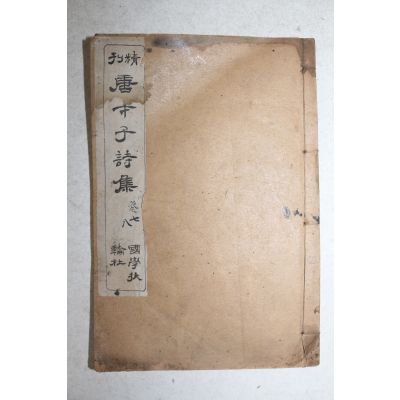 精刋
唐才子詩集
卷七八
國學扶輪社